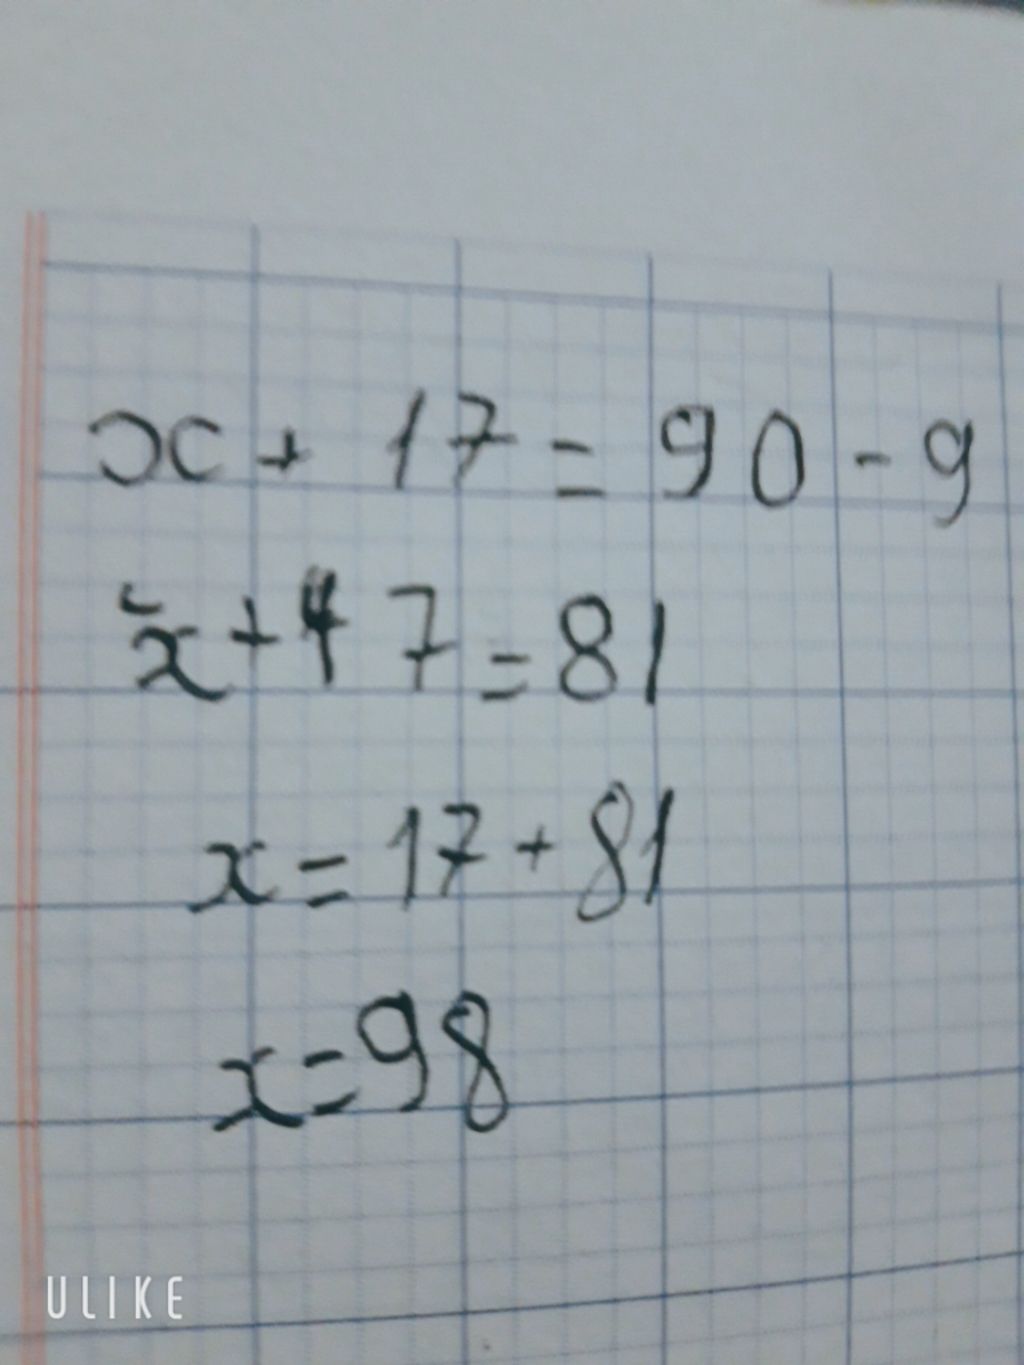 x + 17 = 90 - 9
x + 17 = 81
x = 17 + 81
x = 98
ULIKE